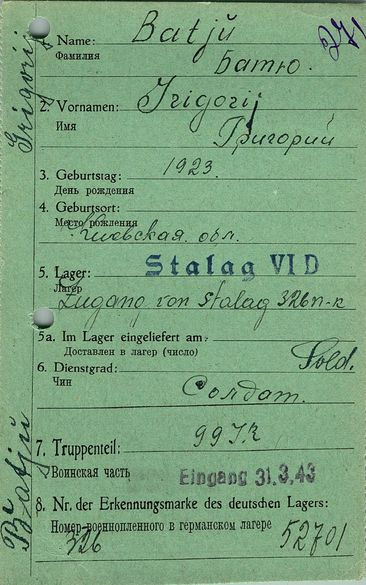 Grigorij
Batjü
271
1. Name: Batjü
Фамилия Батю.
2. Vornamen: Grigorij
Имя Григорий
3. Geburtstag: 1923.
День рождения
4. Geburtsort:
Место рождения
Киевская. обл.
5. Lager: Stalag VI D
Лагерь
Zugang von Stalag 326
5a. Im Lager eingeliefert am:
Доставлен в лагер (число)
6. Dienstgrad: Sold.
Чин Солдат.
7. Truppenteil:
Воинская часть
Eingang 31.3.43
8. Nr. der Erkennungsmarke des deutschen Lagers:
Номер военнопленного в германском лагере
326 52701